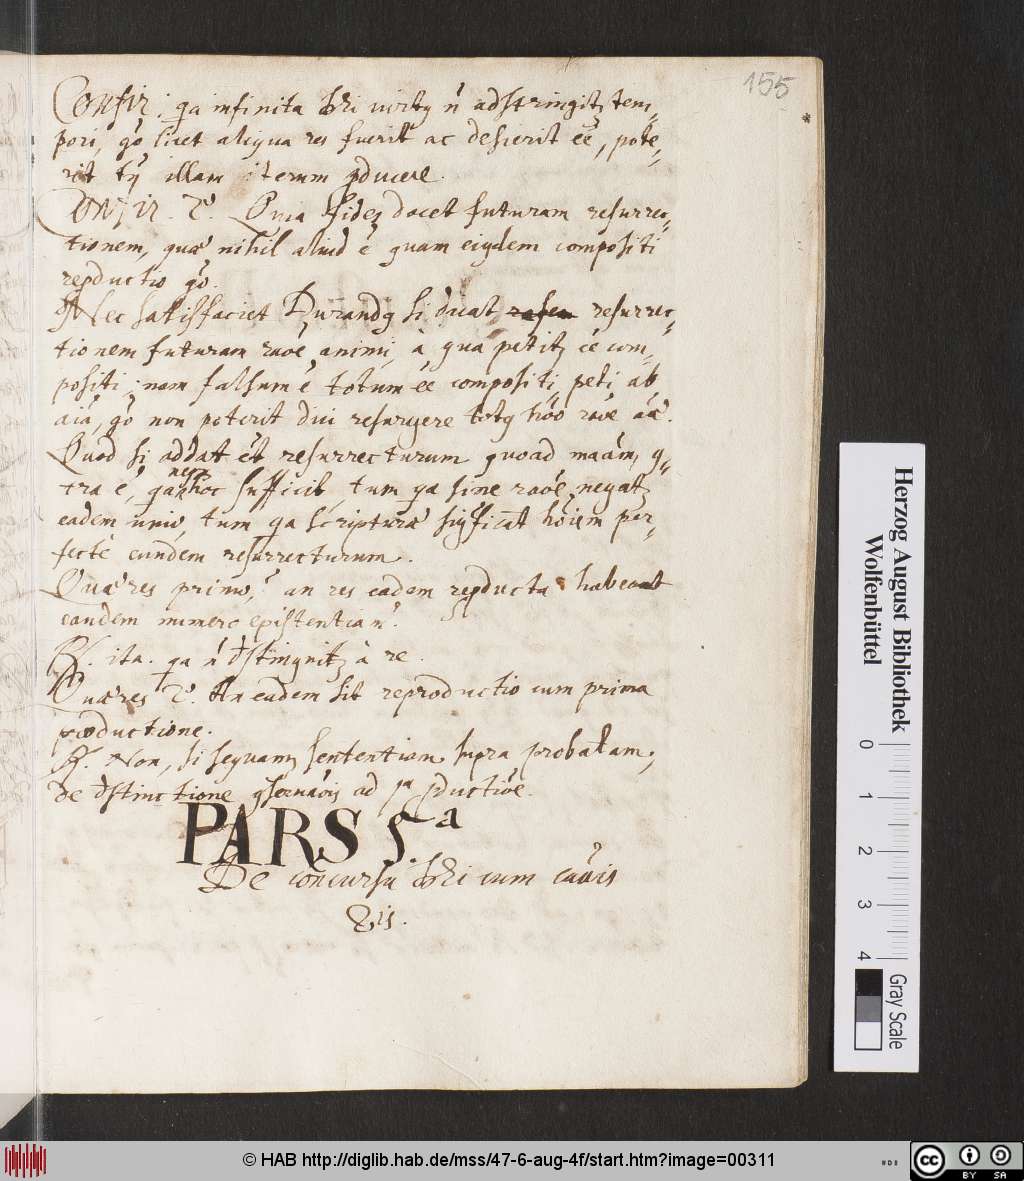 155
Confir. qa infinita Dei virtus n̄ adstringitr tem-
pori, go licet aliqua res fuerit ac desierit ee, pote-
rit tn illam iterum producere.
Confir. 2º. Quia fides docet futuram resurrec-
tionem, quæ nihil aliud ē quam eiusdem compositi
reproductio go.
Nec satisfaciet Durandus si dicat resurrec-
tionem futuram raoe animi, à qua petitr ee com-
positi; nam falsum ē totum ee compositi peti ab
aiā, go non poterit dici resurgere totus hoo raoe aæ.
Quod si addat et resurrecturum quoad maam, 9-
tra ē, qa neqz hoc sufficit, tum qa sine raoe negatr
eadem unio, tum qa scriptura significat hoiem per-
fectè eundem resurrecturum.
Quæres primo, an res eadem reproducta habeat
eandem numero existentiam?
R. ita. qa n̄ distinguitr à re.
Quæres 2º. An eadem sit reproductio cum prima
productione.
R. Non, si sequamr sententiam supra probatam,
de distinctione 9servaois ad pa productioe.
PARS 5.a
De concursu Dei cum causis
2is.
Herzog August Bibliothek
Wolfenbüttel
0 1 2 3 4
Gray Scale
© HAB http://diglib.hab.de/mss/47-6-aug-4f/start.htm?image=00311
cc BY SA